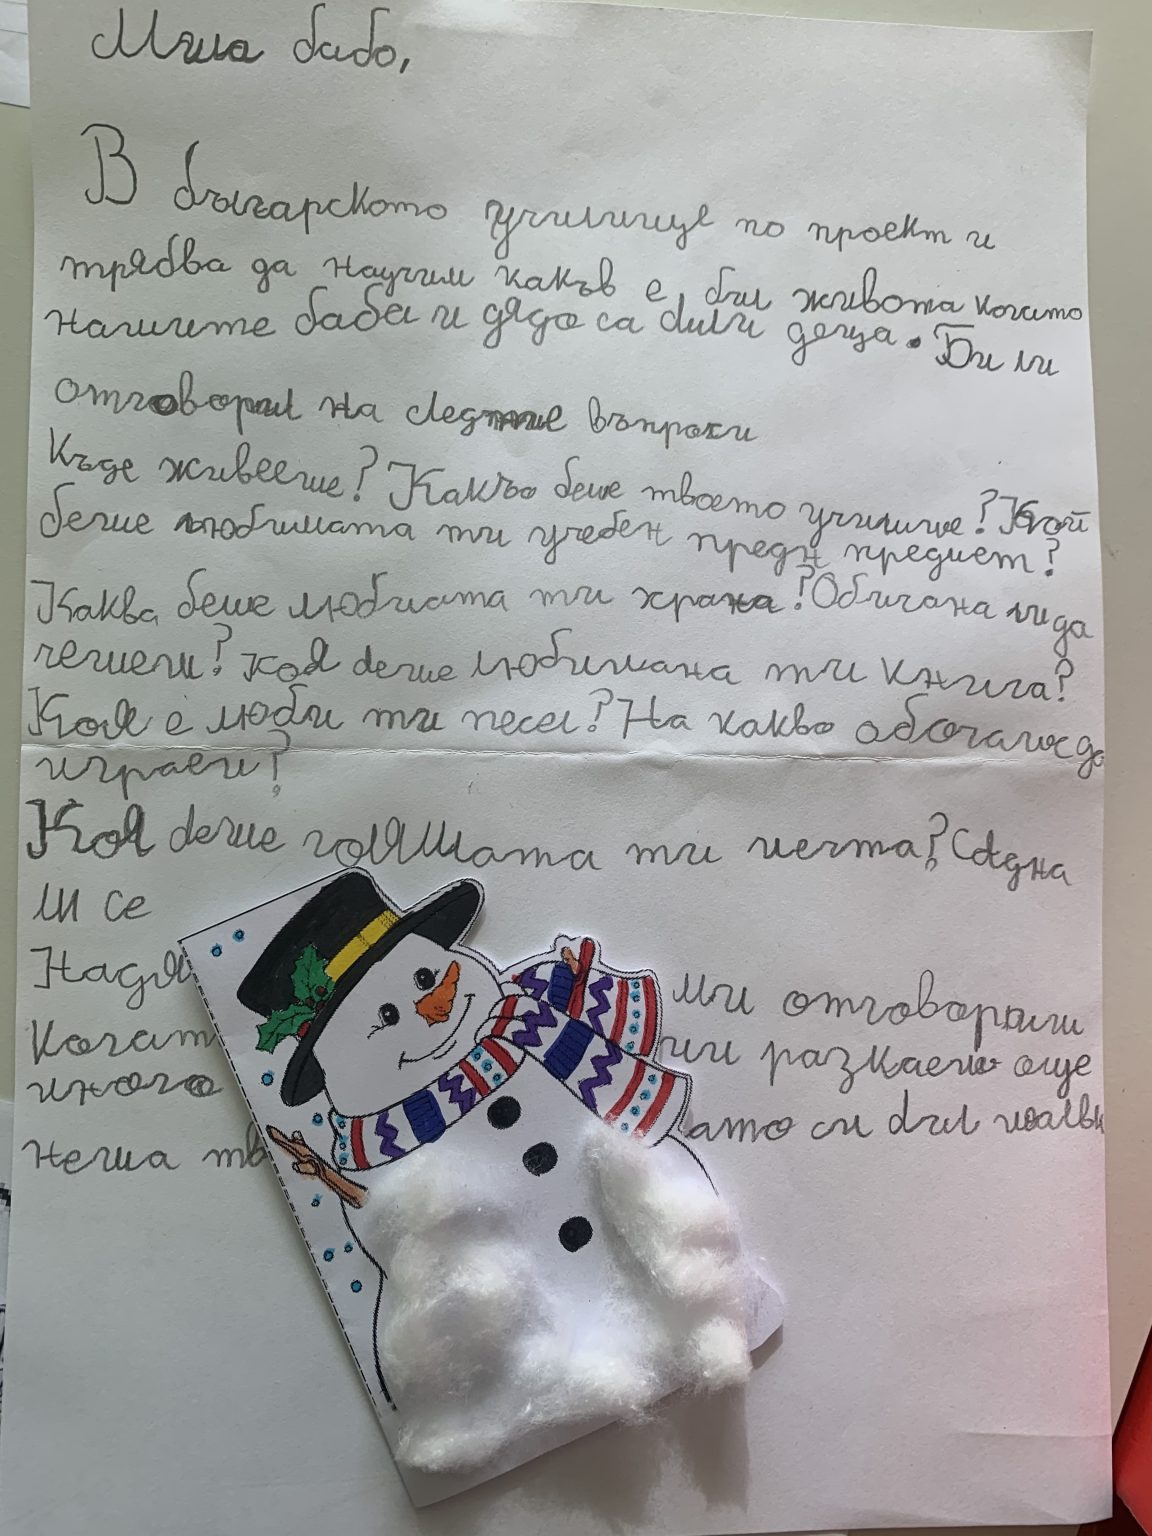 Мила бабо,
В българското училище по проект и
трябва да научим какъв е бил живота когато
нашите баби и дядо са били деца. Би ли
отговорил на следните въпроси
Къде живееше? Какво беше твоето училище? Кой
беше любимата ти учебен предн предмет?
Каква беше любиата ти храна? Обичана ли да
четеш? Коя беше любимана ти книга?
Коя е люби ти песен? На какво обочаше да
играеш?
Коя беше голяШата ти мечта? Сбъдна
ли се
Надя ми отговориш
Когат ли разкаеш още
много ато си бил малък
Неща тв